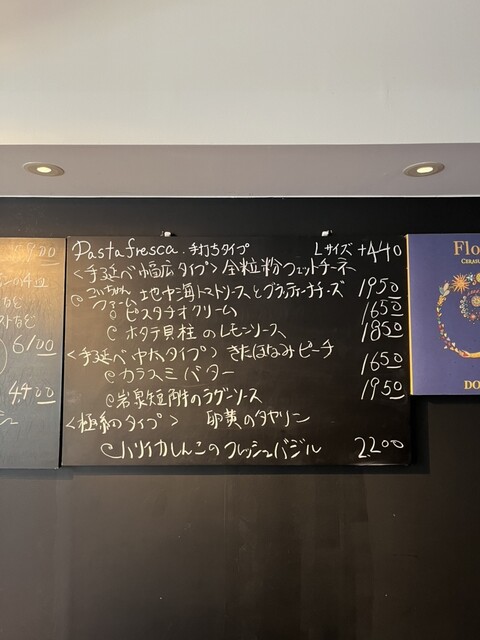 Pasta fresca. 手打ちタイプ Lサイズ +440
<手延べ幅広タイプ> 全粒粉フェットチーネ
こいちゃんファーム 地中海トマトソースとグラナパダーノチーズ 1950
ピスタチオクリーム 1650
ホタテ貝柱のレモンソース 1850
<手延べ中太タイプ> きたほなみピーチ
カラスミバター 1650
岩泉短角のラグーソース 1950
<極細のタイプ> 卵黄のタヤリン
ハリイカしんこのフレッシュバジル 2200
6100
4400
Flo
DO